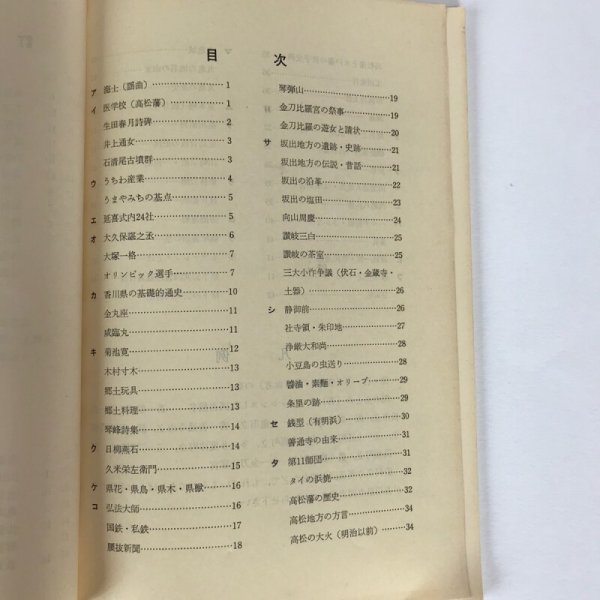 目次
ア 海士（謡曲）……………1
イ 医学校（高松藩）……………1
生田春月詩碑……………2
井上通女……………3
石清尾古墳群……………3
ウ うちわ産業……………4
うまやみちの基点……………5
エ 延喜式内24社……………5
オ 大久保諶之丞……………6
大塚一格……………7
オリンピック選手……………7
カ 香川県の基礎的通史……………10
金丸座……………11
咸臨丸……………11
キ 菊池寛……………12
木村寸木……………13
郷土玩具……………13
郷土料理……………13
琴峰詩集……………14
ク 日柳燕石……………14
久米栄左衛門……………15
ケ 県花・県鳥・県木・県獣……………16
コ 弘法大師……………16
国鉄・私鉄……………17
腰抜新聞……………18
琴弾山……………19
金刀比羅宮の祭事……………19
金刀比羅の遊女と請状……………20
サ 坂出地方の遺跡・史跡……………21
坂出地方の伝説・昔話……………21
坂出の沿革……………22
坂出の塩田……………23
向山周慶……………24
讃岐三白……………25
讃岐の茶室……………25
三大小作争議（伏石・金蔵寺・
土器）……………26
シ 静御前……………26
社寺領・朱印地……………27
浄厳大和尚……………28
小豆島の虫送り……………28
醬油・素麺・オリーブ……………29
条里の跡……………29
セ 銭型（有明浜）……………30
善通寺の由来……………31
タ 第11師団……………31
タイの浜焼……………32
高松藩の歴史……………32
高松地方の方言……………34
高松の大火（明治以前）……………34